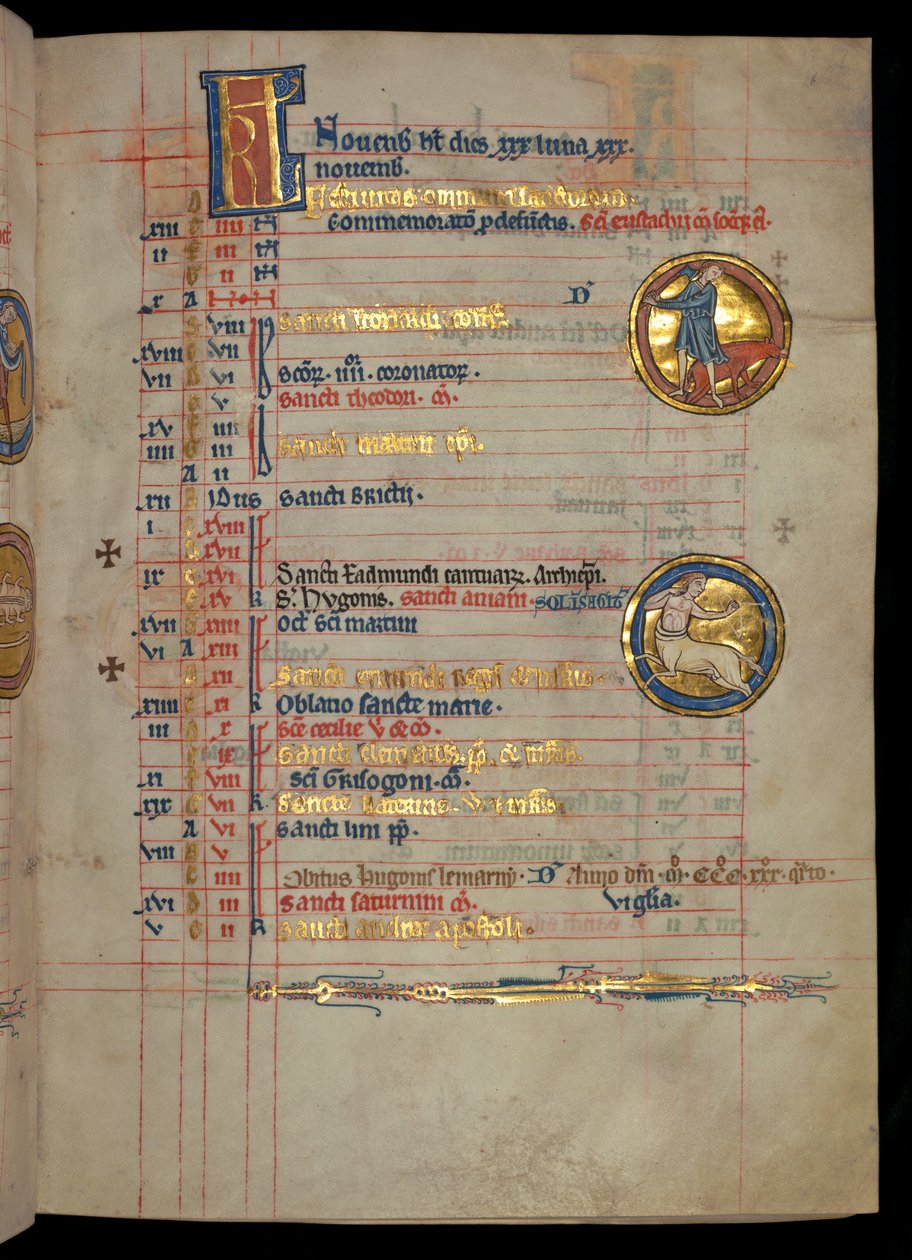 KL Novenb ht dies xxx luna xxx.
novemb.
Festivitas omnium sanctorum.
xiii iiii N Commemoratō p defunctis. Sci eustachii m̄ socioʀ ei.
ii iii N
ii N
x A N D
viii Sancti leonardi confes
xviii vii
vii vi Scōꝝ. iiii. coronatoꝝ.
v Sancti theodori. m̄.
xv iiii
iiii iii Sancti martini epi.
A ii
xii Idus Sancti Brictii.
i xviii
xvii
ix xvi Sancti Eadmundi cantuar. Archiepi.
xv K S. Hugonis. sancti aniani. SOL I SAGIT
xvii xiiii Oct sci martini
vi A xiii
xii Sancti edmundi regis & mris.
xiiii xi K Oblatio sancte marie.
iii x Sce cecilie v & m̄.
ix Sancti clementis. pp. & mris.
xi viii Sci Grisogoni. m̄.
xix vii K Sancte katerine. v & mris.
A vi Sancti lini pp.
viii v
iiii Obitus hugonis lemarny. D Anno dni. m̊. CCC. xxx. qrto.
xvi iii Sancti saturnini m̄. Vigilia.
v ii K Sancti andree apostoli.